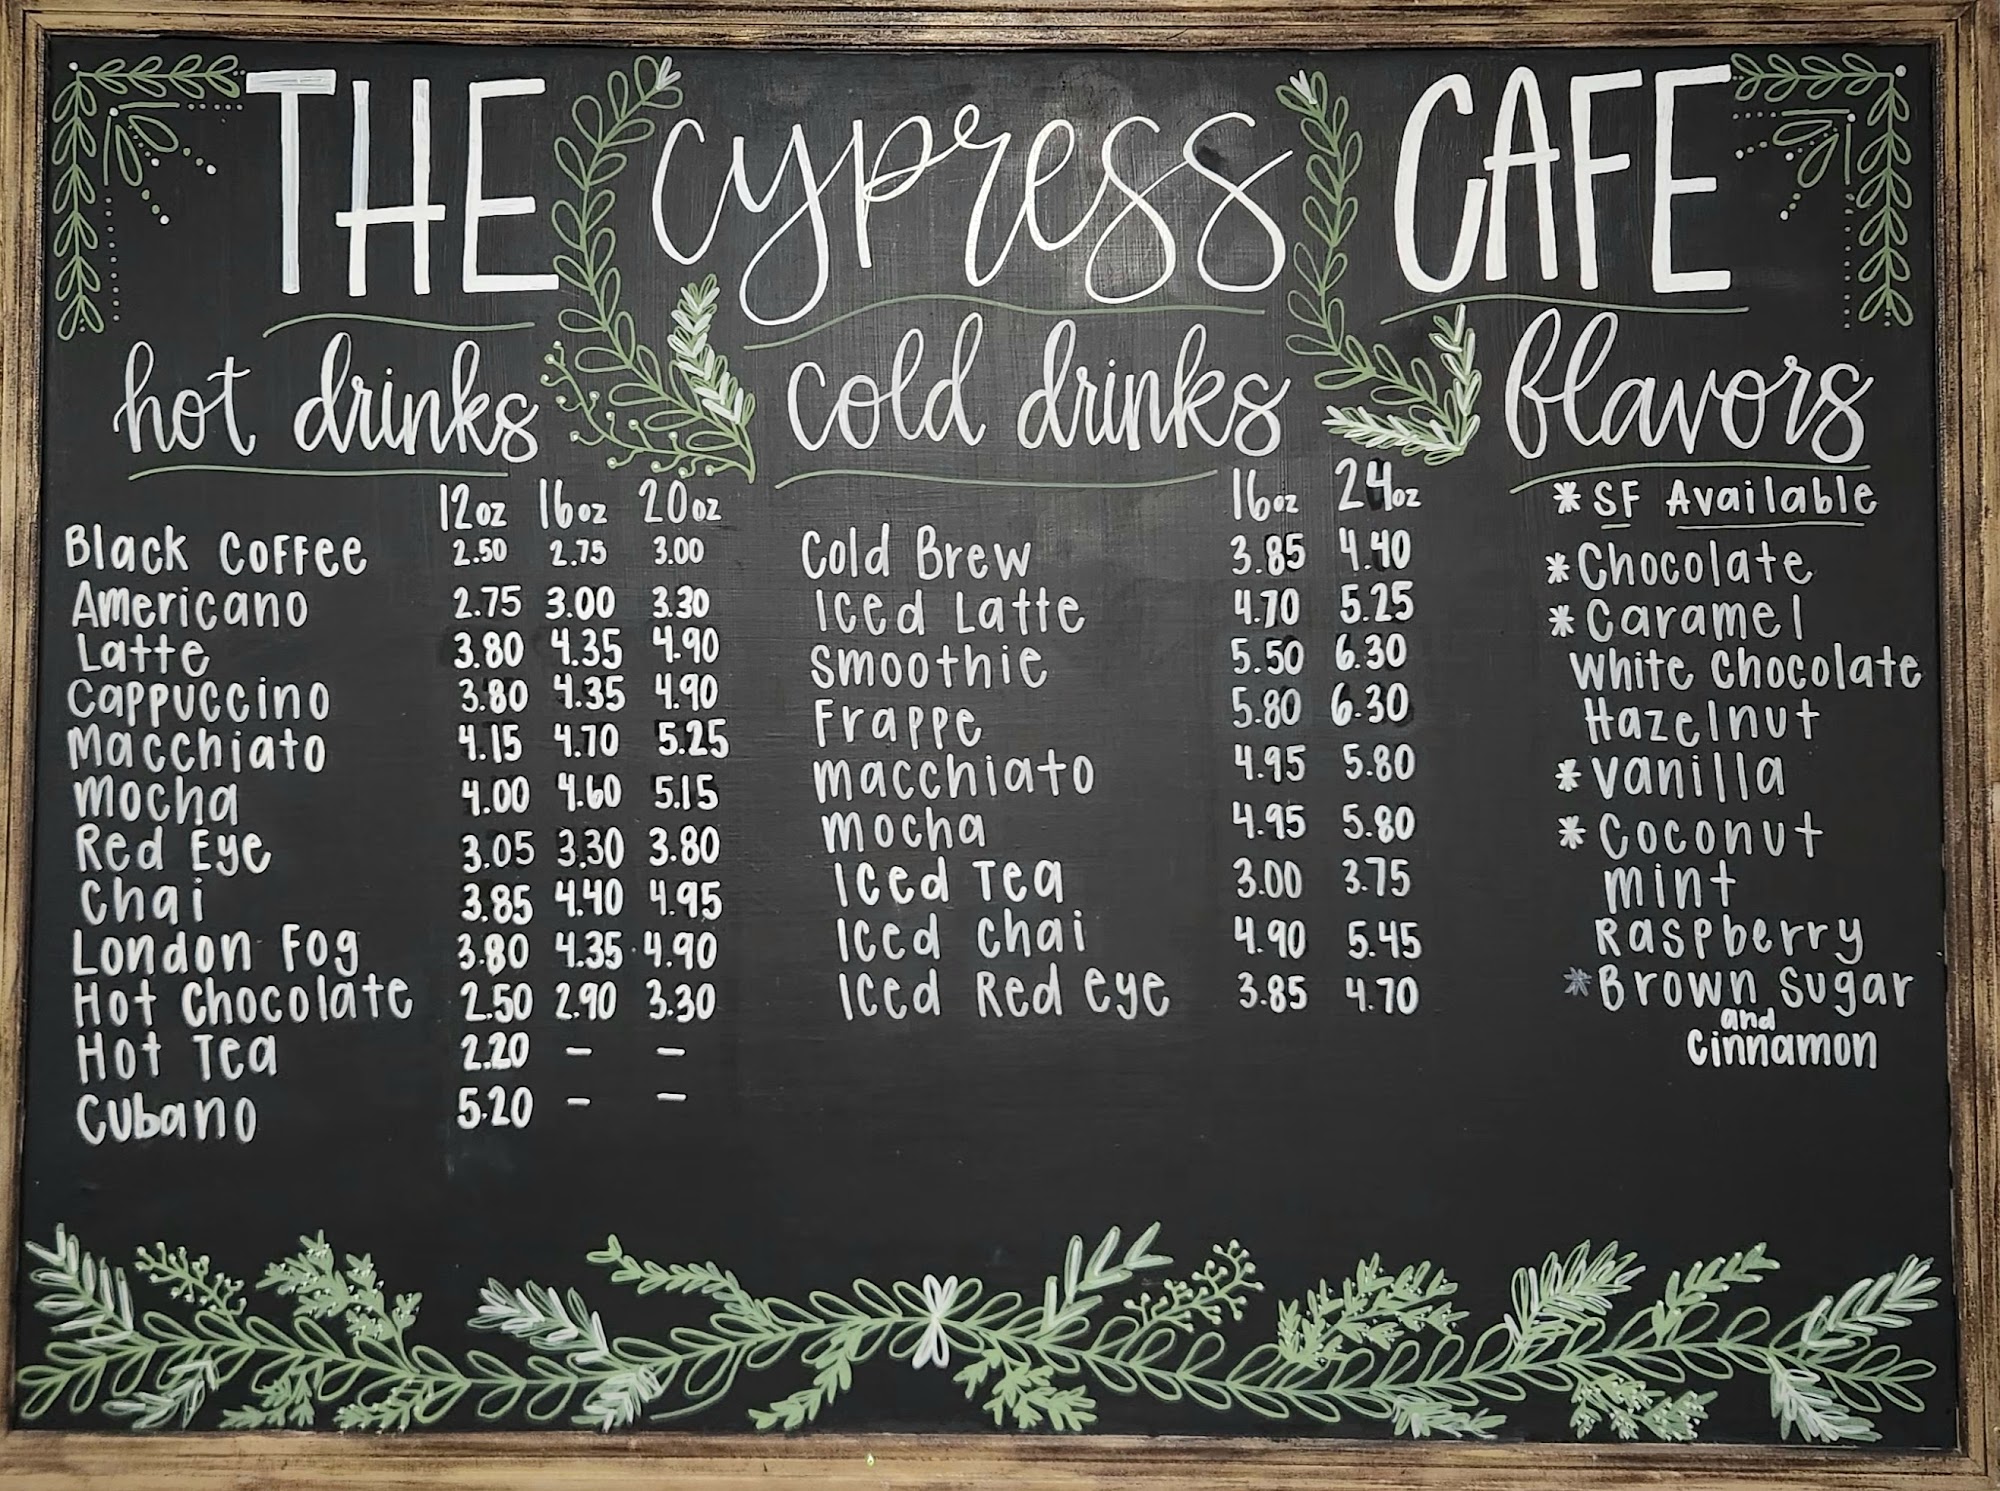 THE cypress CAFE
hot drinks
12oz 16oz 20oz
Black Coffee 2.50 2.75 3.00
Americano 2.75 3.00 3.30
Latte 3.80 4.35 4.90
Cappuccino 3.80 4.35 4.90
Macchiato 4.15 4.70 5.25
Mocha 4.00 4.60 5.15
Red Eye 3.05 3.30 3.80
Chai 3.85 4.40 4.95
London Fog 3.80 4.35 4.90
Hot Chocolate 2.50 2.90 3.30
Hot Tea 2.20 – –
Cubano 5.20 – –
cold drinks
16oz 24oz
Cold Brew 3.85 4.40
Iced Latte 4.70 5.25
Smoothie 5.50 6.30
Frappe 5.80 6.30
Macchiato 4.95 5.80
Mocha 4.95 5.80
Iced Tea 3.00 3.75
Iced Chai 4.90 5.45
Iced Red Eye 3.85 4.70
flavors
* SF Available
* Chocolate
* Caramel
White Chocolate
Hazelnut
* Vanilla
* Coconut
Mint
Raspberry
* Brown Sugar
and
Cinnamon